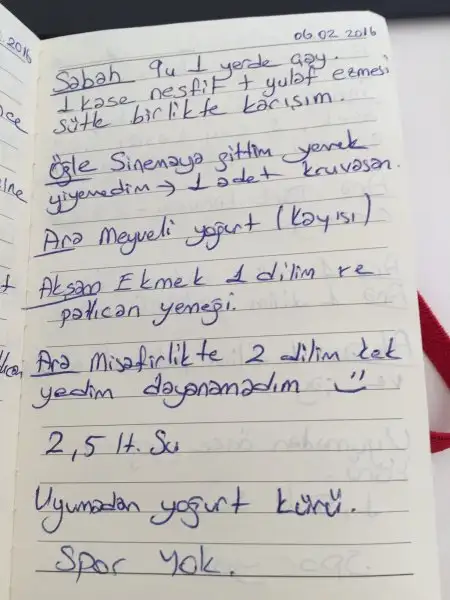 06.02.2016
Sabah 9u 1 yerde çay.
1 kase nesfit + yulaf ezmesi
sütle birlikte karışım.
Öğle Sinemaya gittim yemek
yiyemedim → 1 adet kruvasan.
Ara Meyveli yoğurt (kayısı)
Akşam Ekmek 1 dilim ve
patlıcan yemeği.
Ara Misafirlikte 2 dilim kek
yedim dayanamadım
2,5 lt. Su
Uyumadan yoğurt kürü.
Spor yok.